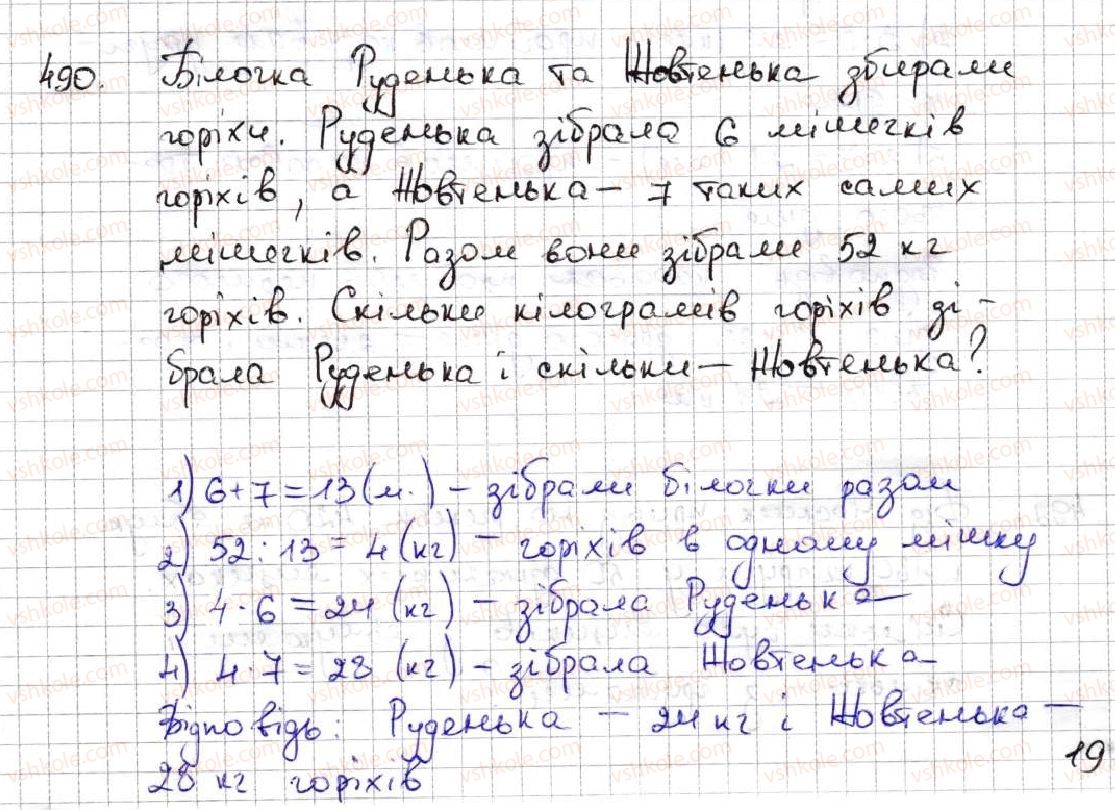 490. Білочка Руденька та Жовтенька збирали
горіхи. Руденька зібрала 6 мішечків
горіхів, а Жовтенька – 7 таких самих
мішечків. Разом вони зібрали 52 кг
горіхів. Скільки кілограмів горіхів зі-
брала Руденька і скільки – Жовтенька?
1) 6+7=13 (м.) – зібрали білочки разом
2) 52:13 = 4 (кг) – горіхів в одному мішку
3) 4·6 = 24 (кг) – зібрала Руденька
4) 4·7 = 28 (кг) – зібрала Жовтенька
Відповідь: Руденька – 24 кг і Жовтенька –
28 кг горіхів
19
vshkole.com